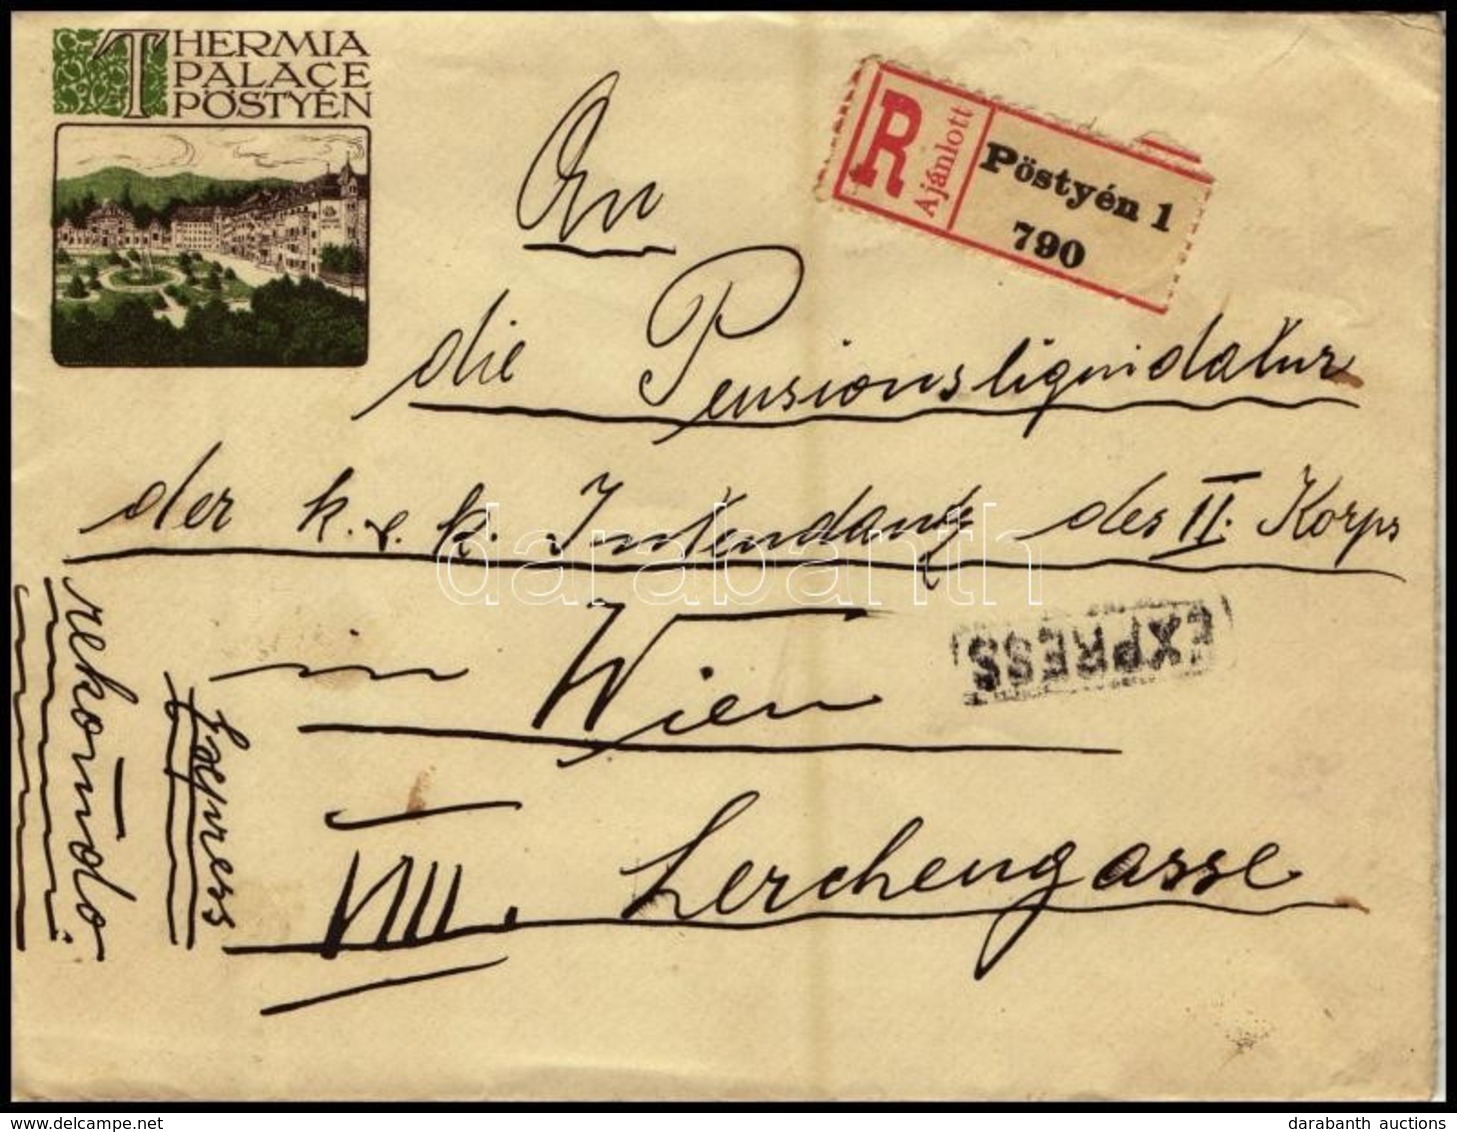 THERMIA
PALACE
PÖSTYÉN
R
Ajánlott
Pöstyén 1
790
An
die Pensionsliquidatur
der k. u. k. Intendanz des II. Korps
in Wien
EXPRESS
VIII. Lerchengasse
rekomādo.
Express
darabanth
darabanth auctions